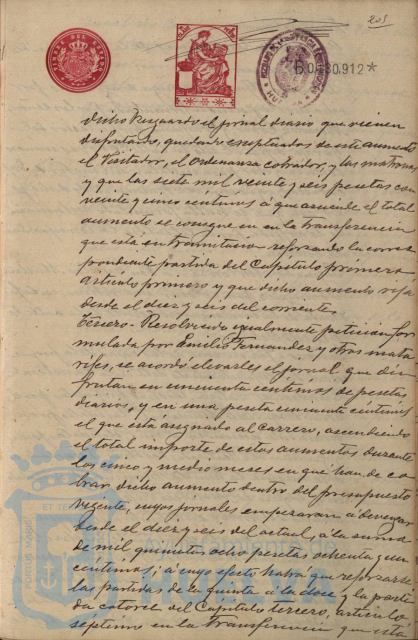 203
TIMBRE DEL ESTADO
B.0480.912*
dicho Resguardo el jornal diario que vienen
disfrutando, quedando exceptuados de este aumento
el Visitador, el Ordenanza cobrador, y las matronas,
y que las siete mil veinte y seis pesetas con
veinte y cinco centimos á que asciende el total
aumento se consigne en la transferencia
que está en tramitación reforzando la corres
pondiente partida del Capítulo primero
artículo primero y que dicho aumento rija
desde el diez y seis del corriente.
Tercero- Resolviendo igualmente petición for
mulada por Emilio Fernandez y otros mata
rifes, se acordó elevarles el jornal que dis
frutan en cincuenta centimos de pesetas
diarios, y en una peseta cincuenta centimos
el que está asignado al Carrero, ascendiendo
el total importe de estos aumentos durante
los cinco y medio meses en que han de co
brar dicho aumento dentro del presupuesto
vigente, cuyos jornales empezaran á devengar
desde el diez y seis del actual, á la suma
de mil quinientas ocho pesetas ochenta y un
centimos; á cuyo efecto habrá que reforzarse
las partidas de la quinta á la doce y la parti
da catorce del Capítulo tercero, artículo
septimo en la transferencia que está